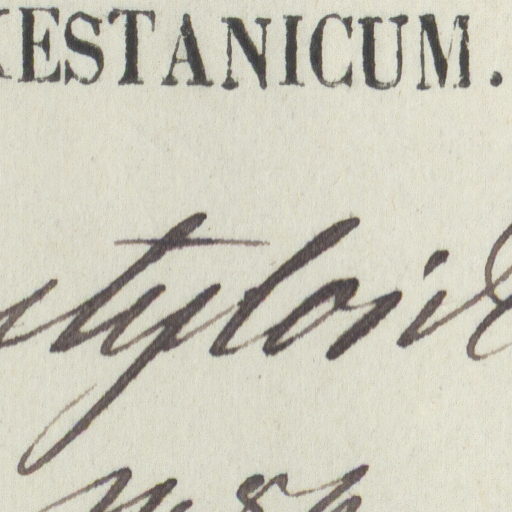 KESTANICUM.
styloid